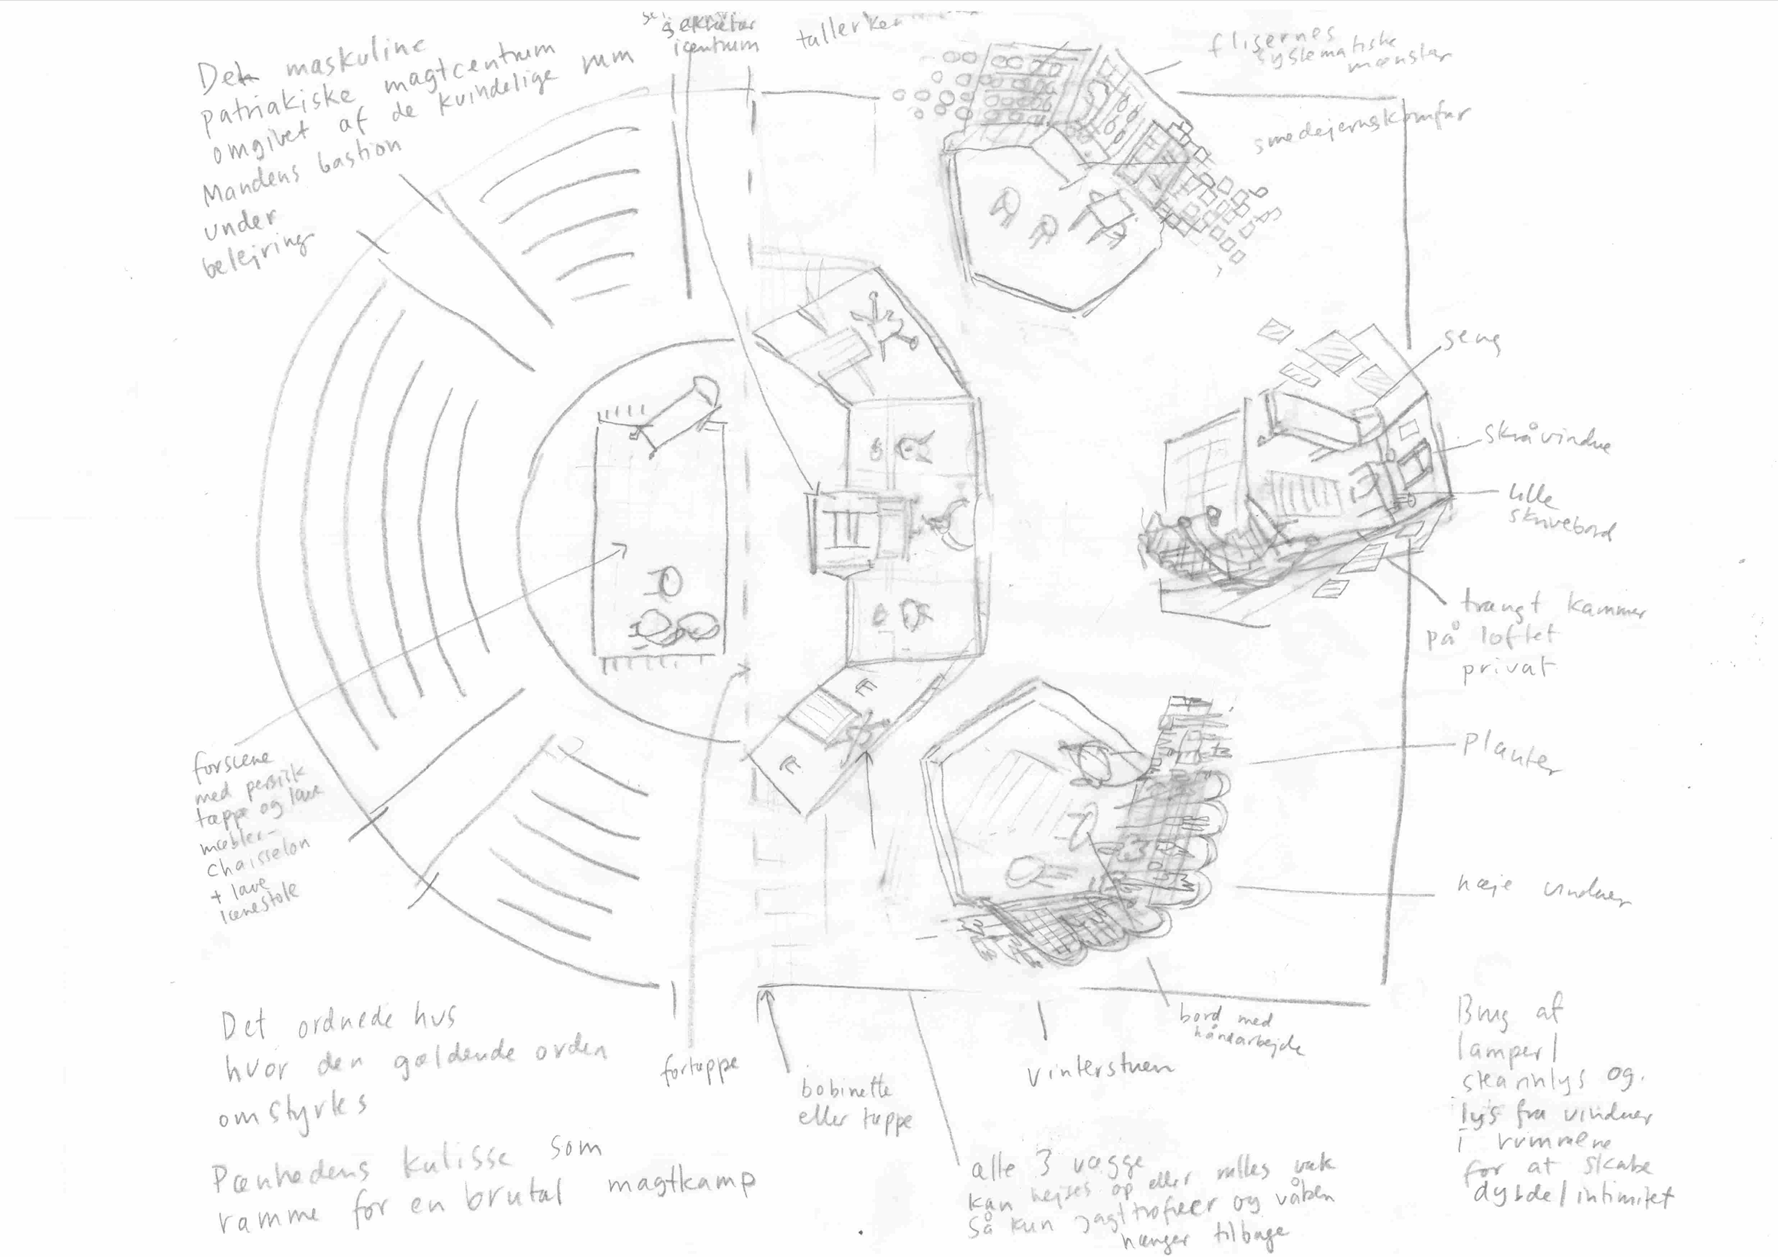 Det maskuline
patriakiske magtcentrum
omgivet af de kvindelige rum
Mandens bastion
under
belejring
sekretær
i centrum
tallerken
flisernes
systematiske
mønster
smedejernskomfur
seng
skråvindue
lille
skrivebord
trangt kammer
på loftet
privat
planter
høje vinduer
forscene
med persisk
tæppe og lave
møbler-
chaisselon
+ lave
lænestole
Det ordnede hus
hvor den gældende orden
omstyrkes
Pænhedens kulisse som
ramme for en brutal magtkamp
fortæppe
bobinette
eller tæppe
vinterstuen
bord med
håndarbejde
alle 3 vægge
kan hejses op eller rulles væk
så kun jagttrofæer og våben
hænger tilbage
Brug af
lamper/
stearinlys og
lys fra vinduer
i rummene
for at skabe
dybde/intimitet